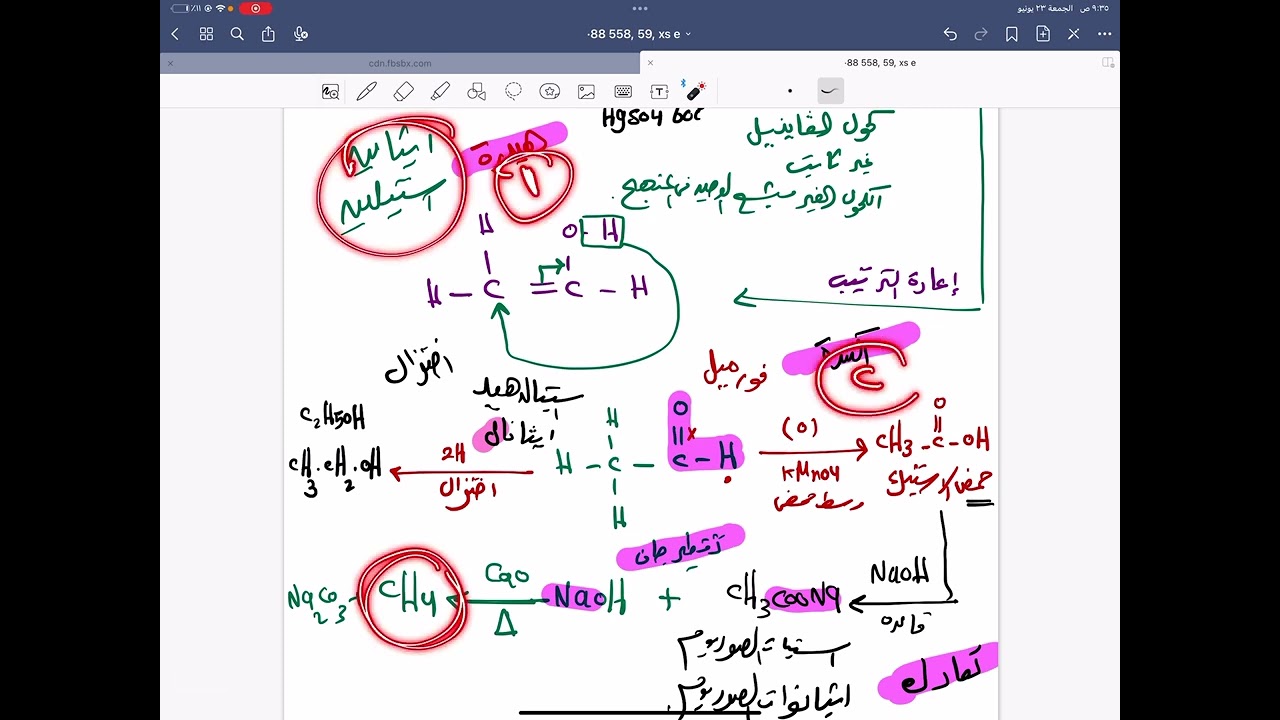 ٩:٣٥ ص الجمعة ٢٣ يونيو
٪١١
-88 558, 59, xs e
cdn.fbsbx.com
-88 558, 59, xs e
Hgso4 60c
كحول الفاينيل
غير ثابت
الكحول الغير مشبع الوحيد في المنهج.
ايثاين
استيلين
هيدرة
١
H O - H
H - C = C - H
إعادة الترتيب
أكسدة
٢
فورميل
اختزال
استيالدهيد
ايثانال
C2H5OH
CH3.CH2.OH
2H
اختزال
H O
H - C - C - H
H
(O)
KMnO4
وسط حمضي
O
CH3 - C - OH
حمض الاستيك
تقطير جاف
NaOH
قاعدة
CH3COONa + NaOH
CaO
Δ
CH4
Na2CO3
تعادل
اسيتات الصوديوم
ايثانوات الصوديوم.